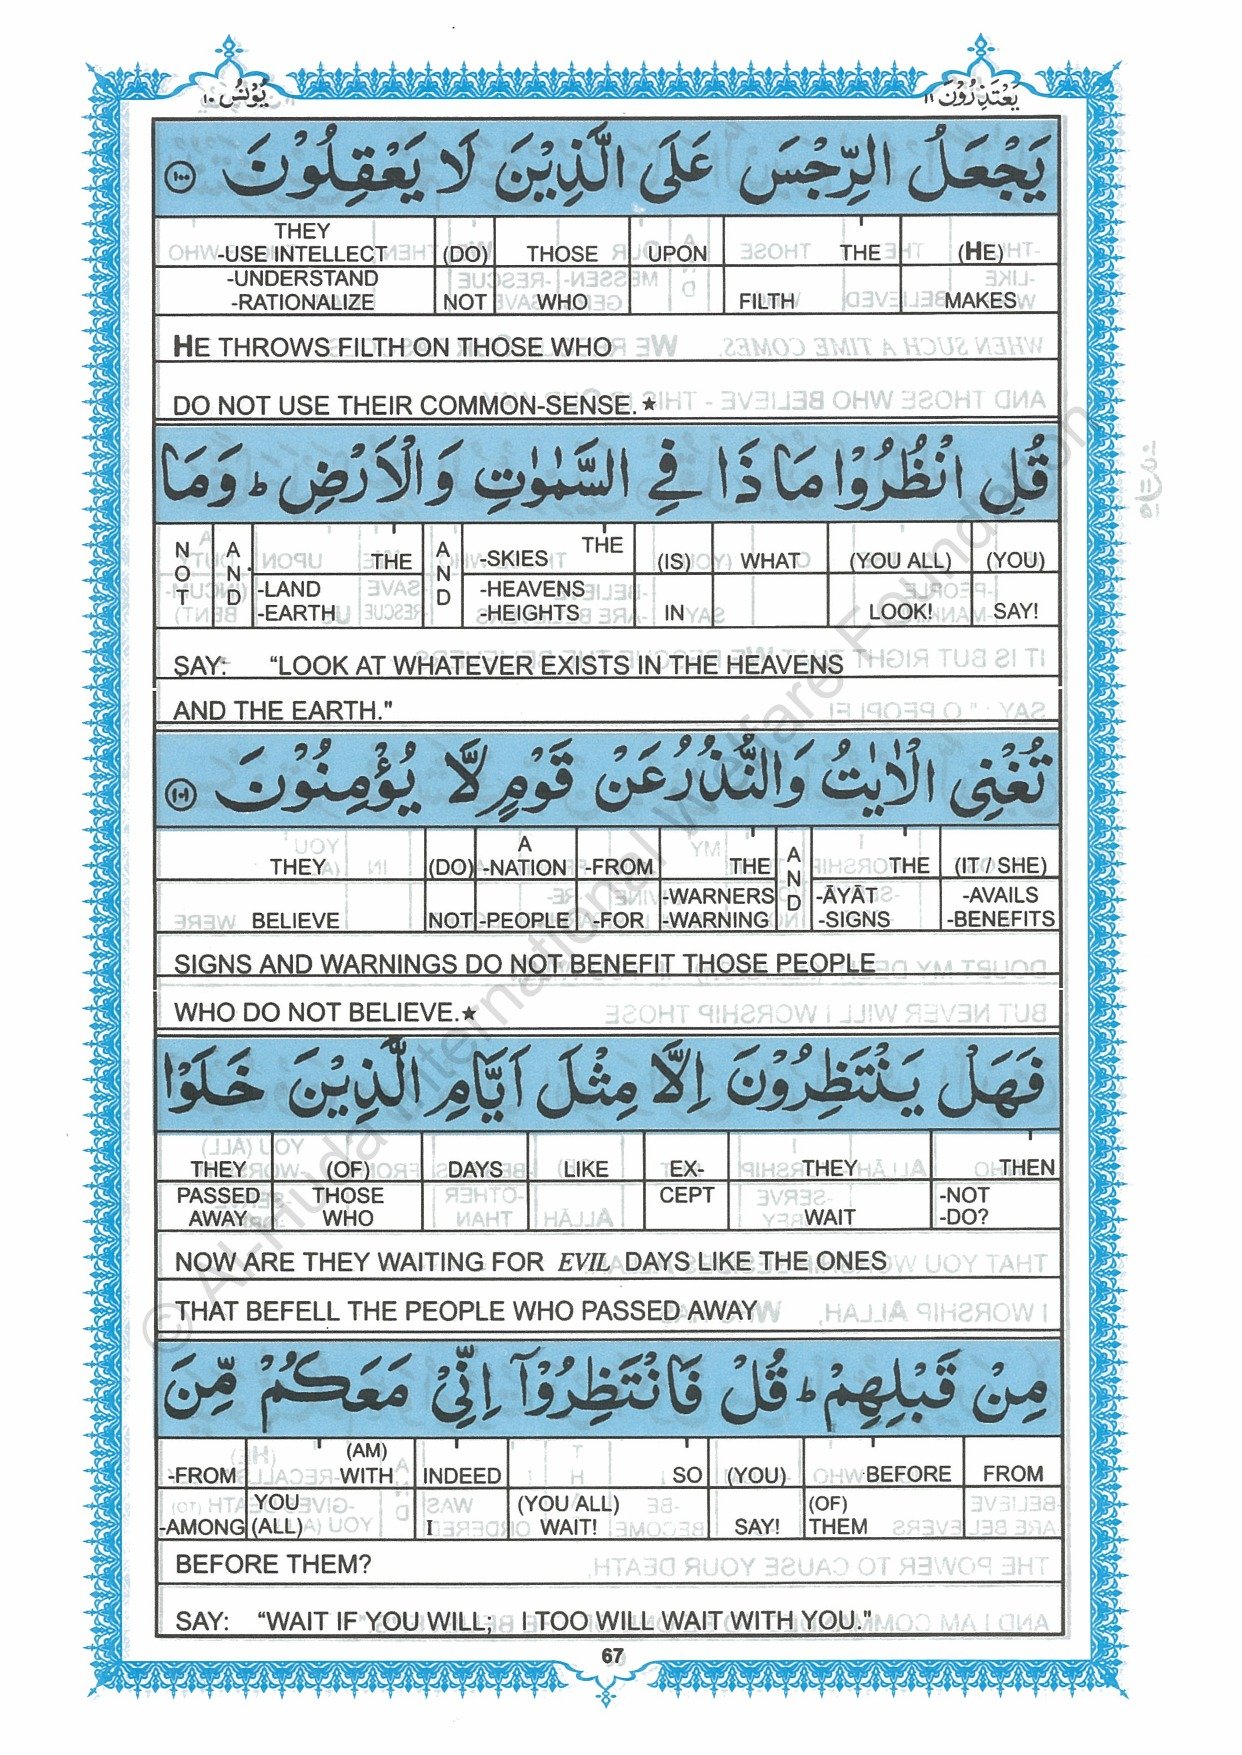 يَعْتَذِرُوْنَ ١١
يُوْنُس ١٠
يَجْعَلُ الرِّجْسَ عَلَى الَّذِيْنَ لَا يَعْقِلُوْنَ ١٠٠
THEY -USE INTELLECT (DO) THOSE UPON THE (HE)
-UNDERSTAND -RATIONALIZE NOT WHO FILTH MAKES
HE THROWS FILTH ON THOSE WHO
DO NOT USE THEIR COMMON-SENSE.★
قُلِ انْظُرُوْا مَاذَا فِي السَّمٰوٰتِ وَالْاَرْضِ ؕ وَمَا
NOT AND THE AND -SKIES THE (IS) WHAT (YOU ALL) (YOU)
-LAND -EARTH -HEAVENS -HEIGHTS IN LOOK! SAY!
SAY: "LOOK AT WHATEVER EXISTS IN THE HEAVENS
AND THE EARTH."
تُغْنِى الْاٰيٰتُ وَالنُّذُرُ عَنْ قَوْمٍ لَّا يُؤْمِنُوْنَ ١٠١
THEY (DO) A -NATION -FROM THE AND THE (IT / SHE)
BELIEVE NOT -PEOPLE -FOR -WARNERS -WARNING -ĀYĀT -SIGNS -AVAILS -BENEFITS
SIGNS AND WARNINGS DO NOT BENEFIT THOSE PEOPLE
WHO DO NOT BELIEVE.★
فَهَلْ يَنْتَظِرُوْنَ اِلَّا مِثْلَ اَيَّامِ الَّذِيْنَ خَلَوْا
THEY (OF) DAYS LIKE EX- THEY THEN
PASSED AWAY THOSE WHO CEPT WAIT -NOT -DO?
NOW ARE THEY WAITING FOR EVIL DAYS LIKE THE ONES
THAT BEFELL THE PEOPLE WHO PASSED AWAY
مِنْ قَبْلِهِمْ ؕ قُلْ فَانْتَظِرُوْآ اِنِّيْ مَعَكُمْ مِّنَ
-FROM (AM) WITH INDEED SO (YOU) BEFORE FROM
-AMONG YOU (ALL) I (YOU ALL) WAIT! SAY! (OF) THEM
BEFORE THEM?
SAY: "WAIT IF YOU WILL; I TOO WILL WAIT WITH YOU."
67
© Al-Huda International Welfare Foundation